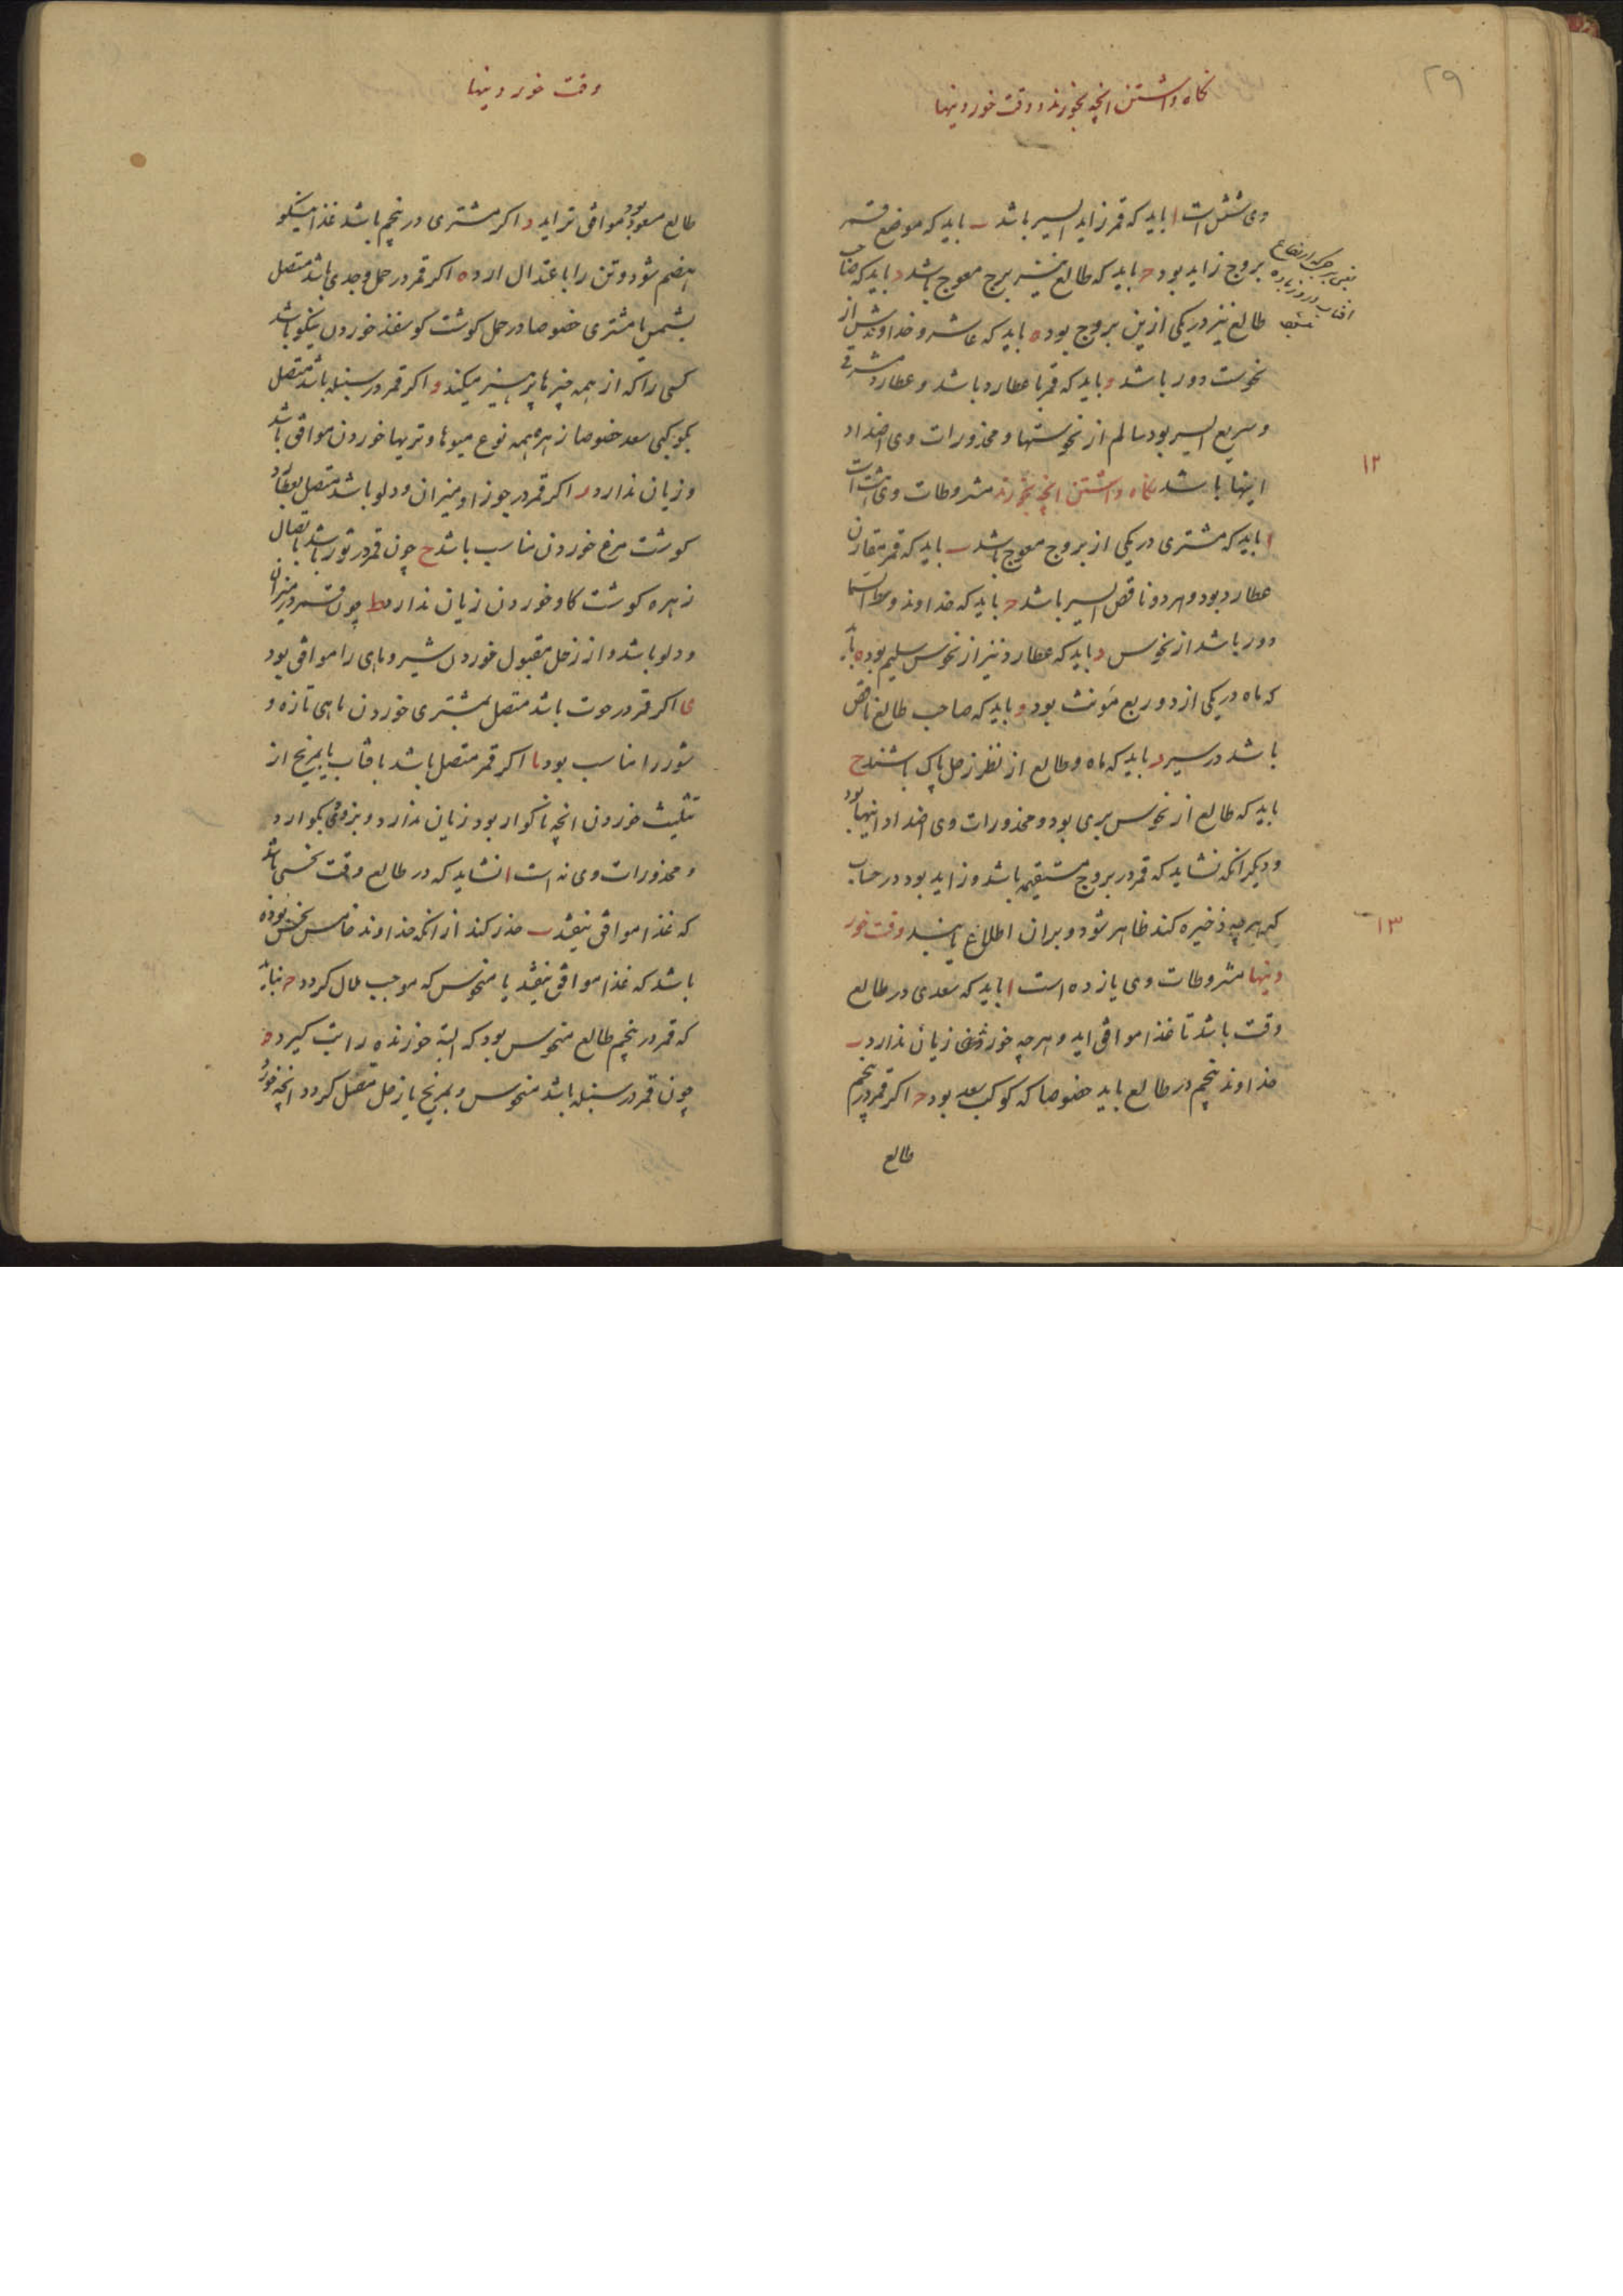 ۲۹
نکاه داشتن انچه بخورند و وقت خوردنیها
وی شش است ا باید که قمر زاید السیر باشد ب باید که موضع قمر
بروج زاید بود ح باید که طالع نیز برج معوج باشد د باید که صاحب
یعنی برجی که ارتفاع
افتاب در روز زیاده
طالع نیز در یکی ازین بروج بود ه باید که عاشر و خداوندش از
نحوست دور باشد و باید که قمر با عطارد باشد و عطارد مشرقی
و سریع السیر بود سالم از نحوستها و محذورات وی اضداد
۱۲
اینها باشد نکاه داشتن انچه بخورند مشروطات وی هشت است
ا باید که مشتری در یکی از بروج معوج باشد ب باید که قمر مقارن
عطارد بود و هر دو ناقص السیر باشد ح باید که خداوند وسط السما
دور باشد از نحوس د باید که عطارد نیز از نحوس سلیم بود ه باید
که ماه در یکی از دو ربع مؤنث بود و باید که صاحب طالع ناقص
باشد در سیر ر باید که ماه و طالع از نظر زحل پاک باشند ح
باید که طالع از نحوس بری بود و محذورات وی اضداد اینها بود
و دیکر انکه نشاید که قمر در بروج مستقیمه باشد و زاید بود در حساب
۱۳
که هر چه ذخیره کند ظاهر شود و بران اطلاع یابند وقت خور
دنیها مشروطات وی یازده است ا باید که سعدی در طالع
وقت باشد تا غذا موافق اید و هر چه خورد زیان ندارد ب
خداوند پنجم در طالع باید خصوصا که کوکب سعد بود ح اکر قمر در پنجم
طالع
وقت خوردنیها
طالع مسعود بود موافق تر اید د اکر مشتری در پنجم باشد غذا نیکو
هضم شود و تن را با عتدال ارد ه اکر قمر در حمل و جدی باشد متصل
بشمس یا مشتری خصوصا در حمل کوشت کوسفند خوردن نیکو باشد
کسی را که از همه چیزها پرهیز میکند و اکر قمر در سنبله باشد متصل
بکوکبی سعد خصوصا زهره همه نوع میوها و تریها خوردن موافق باشد
و زیان ندارد ر اکر قمر در جوزا و میزان و دلو باشد متصل بعطارد
کوشت مرغ خوردن مناسب باشد ح چون قمر در ثور باشد باتصال
زهره کوشت کاو خوردن زیان ندارد ط چون قمر در میزان
و دلو باشد و از زحل مقبول خوردن شیر و ماهی را موافق بود
ی اکر قمر در حوت باشد متصل بمشتری خوردن ماهی تازه و
شور را مناسب بود یا اکر قمر متصل باشد بافتاب یا بمریخ از
تثلیث خوردن انچه ناکوار بود زیان ندارد و بزودی بکوارد
و محذورات وی نه است ا نشاید که در طالع وقت نحسی باشد
که غذا موافق نیفتد ب حذر کند از انکه خداوند خامس نحس بوده
باشد که غذا موافق نیفتد یا منحوس که موجب ملال کردد ح نباید
که قمر در پنجم طالع منحوس بود که البته خورنده را تب کیرد د
چون قمر در سنبله باشد منحوس و بمریخ یا زحل متصل کردد انچه خورد